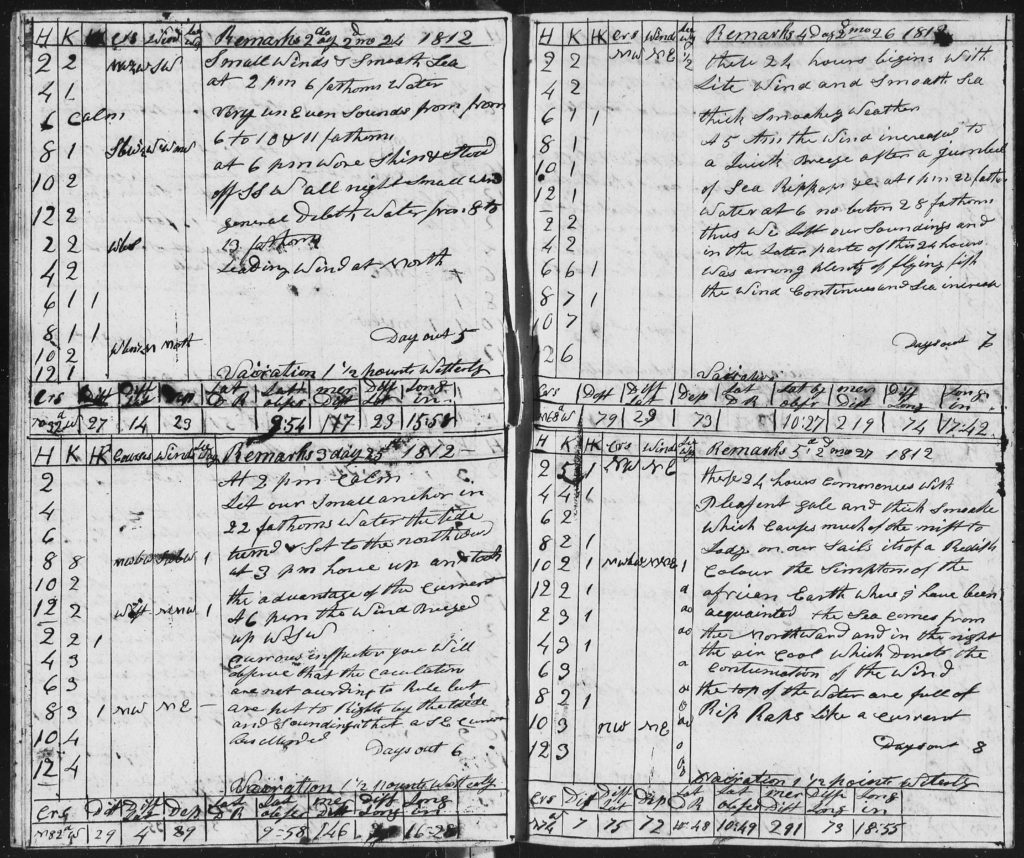 H K HK Crs Wind Remarks 2 day 2d mo 24 1812
2 2 Small Winds & Smooth Sea
4 1 at 2 pm 6 fathoms Water
6 Calm Very un Even Sounds from from
6 to 10 & 11 fathom
8 1 at 6 pm Wore Ship & Stood
10 2 off SSW all night Small Wind
12 2 general Debth Water from 8 to
2 2 13 fathom
4 2 Leading Wind at North
6 1 1
8 1 1 Days out 5
10 2 North
12 1 Vairation 1 1/2 points Westerly
Crs Dist Diff Lat Dep Lat DR Latt obser mer Dist Diff Lon Long in
27 14 23 9:54 117 23 15:58
H K HK Courses Winds Lee Wg Remarks 3 day 25 1812
2 At 2 pm Calm
4 Let our Small anchor in
6 22 fathoms Water the tide
turnd & Set to the northward
8 8 1 at 3 pm hove up and took
10 2 the advantage of the Current
12 2 West 1 A 6 pm the Wind Breezed
2 2 1 up WSW
4 3 you Will
observe that the Caculation
6 3 are not acording to Rule but
8 3 1 NW NE are put to Rights by the tide
10 4 and Soundings that a SE Current
Days out 6
12 4
Vairation 1 1/2 points Westerly
Crs Dist Diff Lat Dep Lat DR Lat obser mer Dist Diff Long Long in
N82 W 29 4 89 9-58 146 16-28
H K HK Crs Winds Lee Wg Remarks 4 Day 2d mo 26 1812
2 2 NW NE 1/2 these 24 hours begins With
4 2 Lite Wind and Smooth Sea
6 7 1 thick Smoakey Weather
8 1 A 5 Am the Wind increased to
10 1 a Quick Breeze after a
12 1 of Sea Ripraps &c. at 1 pm 22 fathom
Water at 6 no botom 28 fathom
2 2 thus We Left our Soundings and
4 2 in the Later parte of this 24 hours
6 6 1 Was among plenty of flying fish
8 7 1 the Wind Continues and Sea increase
10 7
12 6 Days out 7
Crs Dist Diff Lat Dep Lat DR Lat by obser mer Dist Diff Long Long in
N68 W 79 29 73 10:27 219 74 17:42
H K HK Crs Winds Lee Wg Remarks 5 d 2 mo 27 1812
2 5 1 NW NE these 24 hours Commences With
4 4 1 Pleasent gale and thick Smoake
6 2 Which Causes much of the mist to
8 2 1 Lodg on our Sails its of a Redish
10 2 1 1 Colour the Simptoms of the
12 2 1 african Earth Where I have been
2 3 1 acquainted the Sea Comes from
4 3 1 the Northward and in the night
the air Cool Which Denote the
6 3 Contunation of the Wind
8 2 1 the top of the Water are full of
10 3 NW NE Rip Raps Like a Current
12 3 Days out 8
Vairation 1 1/2 points Westerly
Crs Dist Diff Lat Dep Lat DR Lat obser Mer Dist Diff Long Long in
N74 W 7 75 72 10:48 10:49 291 73 18:55